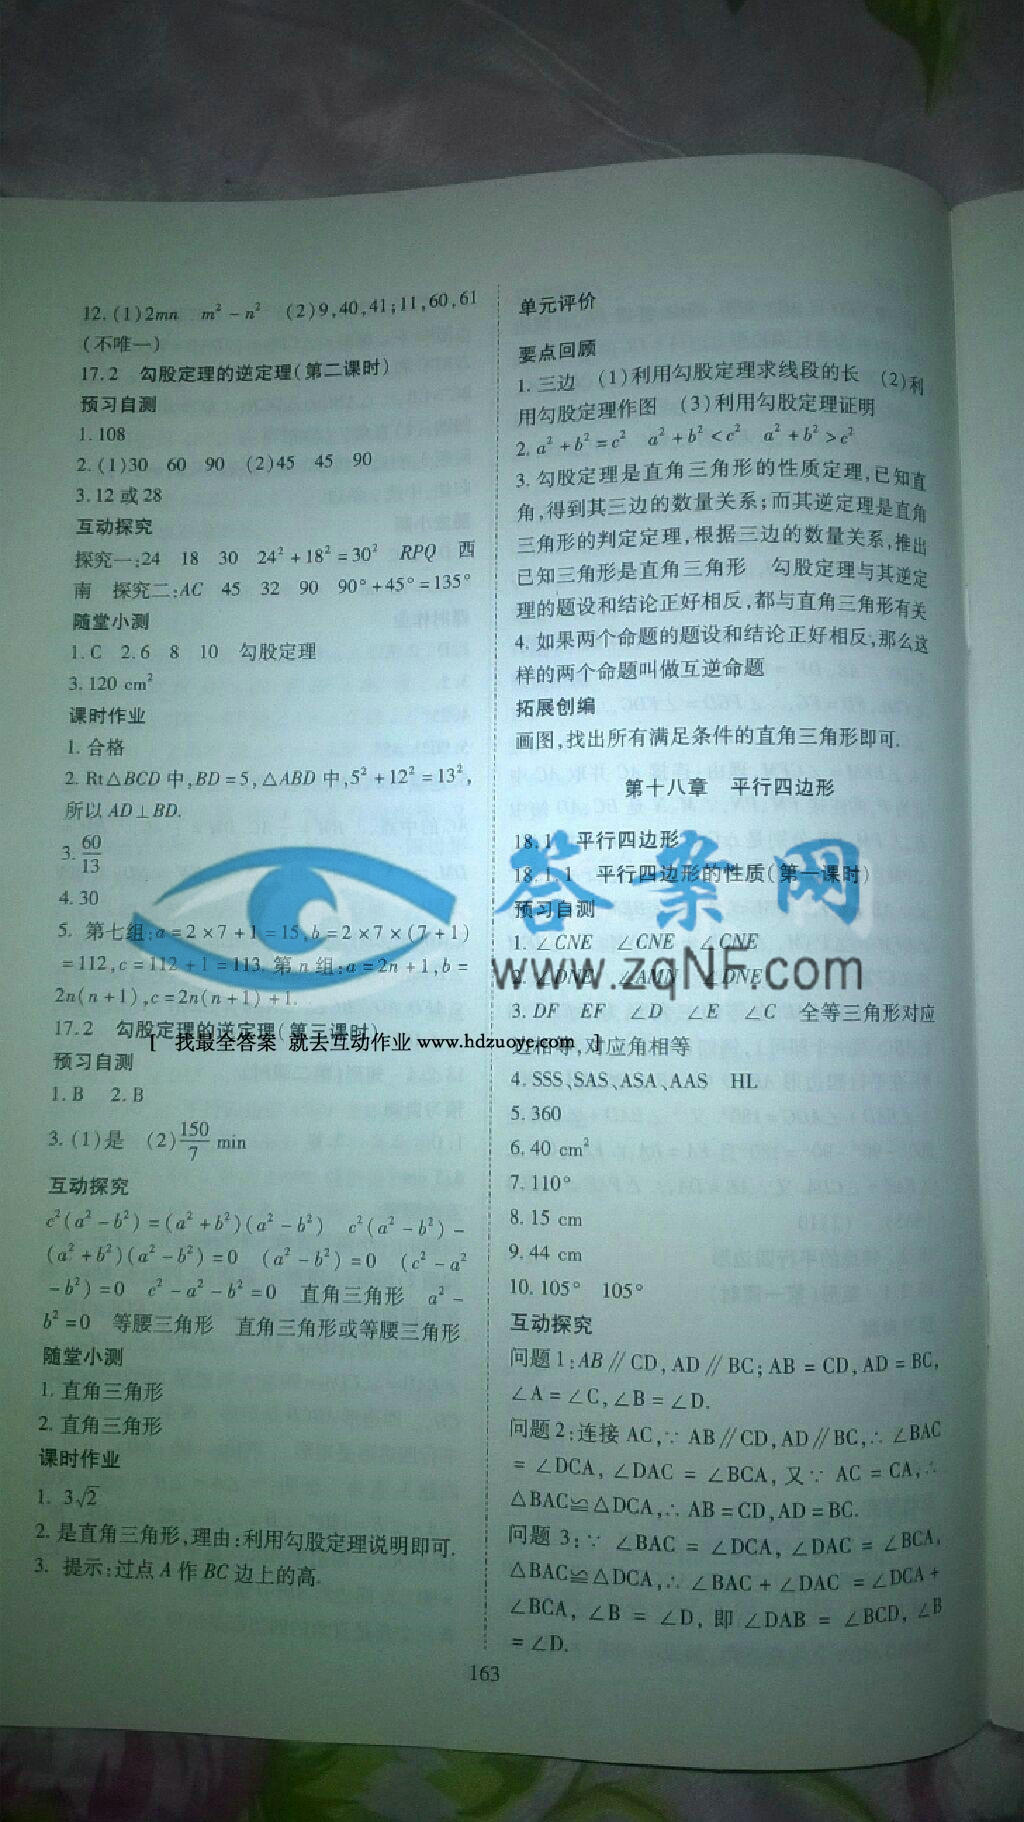 12.(1)2mn m²-n² (2)9,40,41;11,60,61
(不唯一)
17.2 勾股定理的逆定理(第二课时)
预习自测
1.108
2.(1)30 60 90 (2)45 45 90
3.12或28
互动探究
探究一:24 18 30 24²+18²=30² RPQ 西
南 探究二:AC 45 32 90 90°+45°=135°
随堂小测
1.C 2.6 8 10 勾股定理
3.120 cm²
课时作业
1.合格
2.Rt△BCD中,BD=5,△ABD中,5²+12²=13²,
所以AD⊥BD.
3.60/13
4.30
5. 第七组:a=2×7+1=15,b=2×7×(7+1)
=112,c=112+1=113. 第n组:a=2n+1,b=
2n(n+1),c=2n(n+1)+1.
17.2 勾股定理的逆定理(第三课时)
预习自测
1.B 2.B
3.(1)是 (2)150/7 min
互动探究
c²(a²-b²)=(a²+b²)(a²-b²) c²(a²-b²)-
(a²+b²)(a²-b²)=0 (a²-b²)=0 (c²-a²
-b²)=0 c²-a²-b²=0 直角三角形 a²-
b²=0 等腰三角形 直角三角形或等腰三角形
随堂小测
1.直角三角形
2.直角三角形
课时作业
1. 3√2
2.是直角三角形,理由:利用勾股定理说明即可.
3. 提示:过点A作BC边上的高.
单元评价
要点回顾
1.三边 (1)利用勾股定理求线段的长 (2)利
用勾股定理作图 (3)利用勾股定理证明
2.a²+b²=c² a²+b²<c² a²+b²>c²
3.勾股定理是直角三角形的性质定理,已知直
角,得到其三边的数量关系;而其逆定理是直角
三角形的判定定理,根据三边的数量关系,推出
已知三角形是直角三角形 勾股定理与其逆定
理的题设和结论正好相反,都与直角三角形有关
4.如果两个命题的题设和结论正好相反,那么这
样的两个命题叫做互逆命题
拓展创编
画图,找出所有满足条件的直角三角形即可.
第十八章 平行四边形
18.1 平行四边形
18.1.1 平行四边形的性质(第一课时)
预习自测
1.∠CNE ∠CNE ∠CNE
2.∠DNE ∠AMN ∠DNE
3.DF EF ∠D ∠E ∠C 全等三角形对应
边相等,对应角相等
4.SSS、SAS、ASA、AAS HL
5.360
6.40 cm²
7.110°
8.15 cm
9.44 cm
10.105° 105°
互动探究
问题1:AB∥CD,AD∥BC;AB=CD,AD=BC,
∠A=∠C,∠B=∠D.
问题2:连接AC,∵AB∥CD,AD∥BC,∴∠BAC
=∠DCA,∠DAC=∠BCA,又∵AC=CA,∴
△BAC≌△DCA,∴AB=CD,AD=BC.
问题3:∵∠BAC=∠DCA,∠DAC=∠BCA,
△BAC≌△DCA,∴∠BAC+∠DAC=∠DCA+
∠BCA,∠B=∠D,即∠DAB=∠BCD,∠B
=∠D.
163
答案网
www.zqNF.com
[ 找最全答案 就去互动作业 www.hdzuoye.com ]